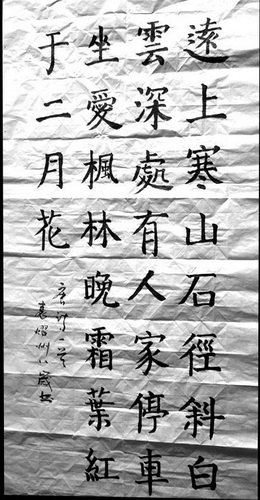 遠上寒山石徑斜白
雲深處有人家停車
坐愛楓林晚霜葉紅
于二月花
唐诗一首
袁 州八歲书